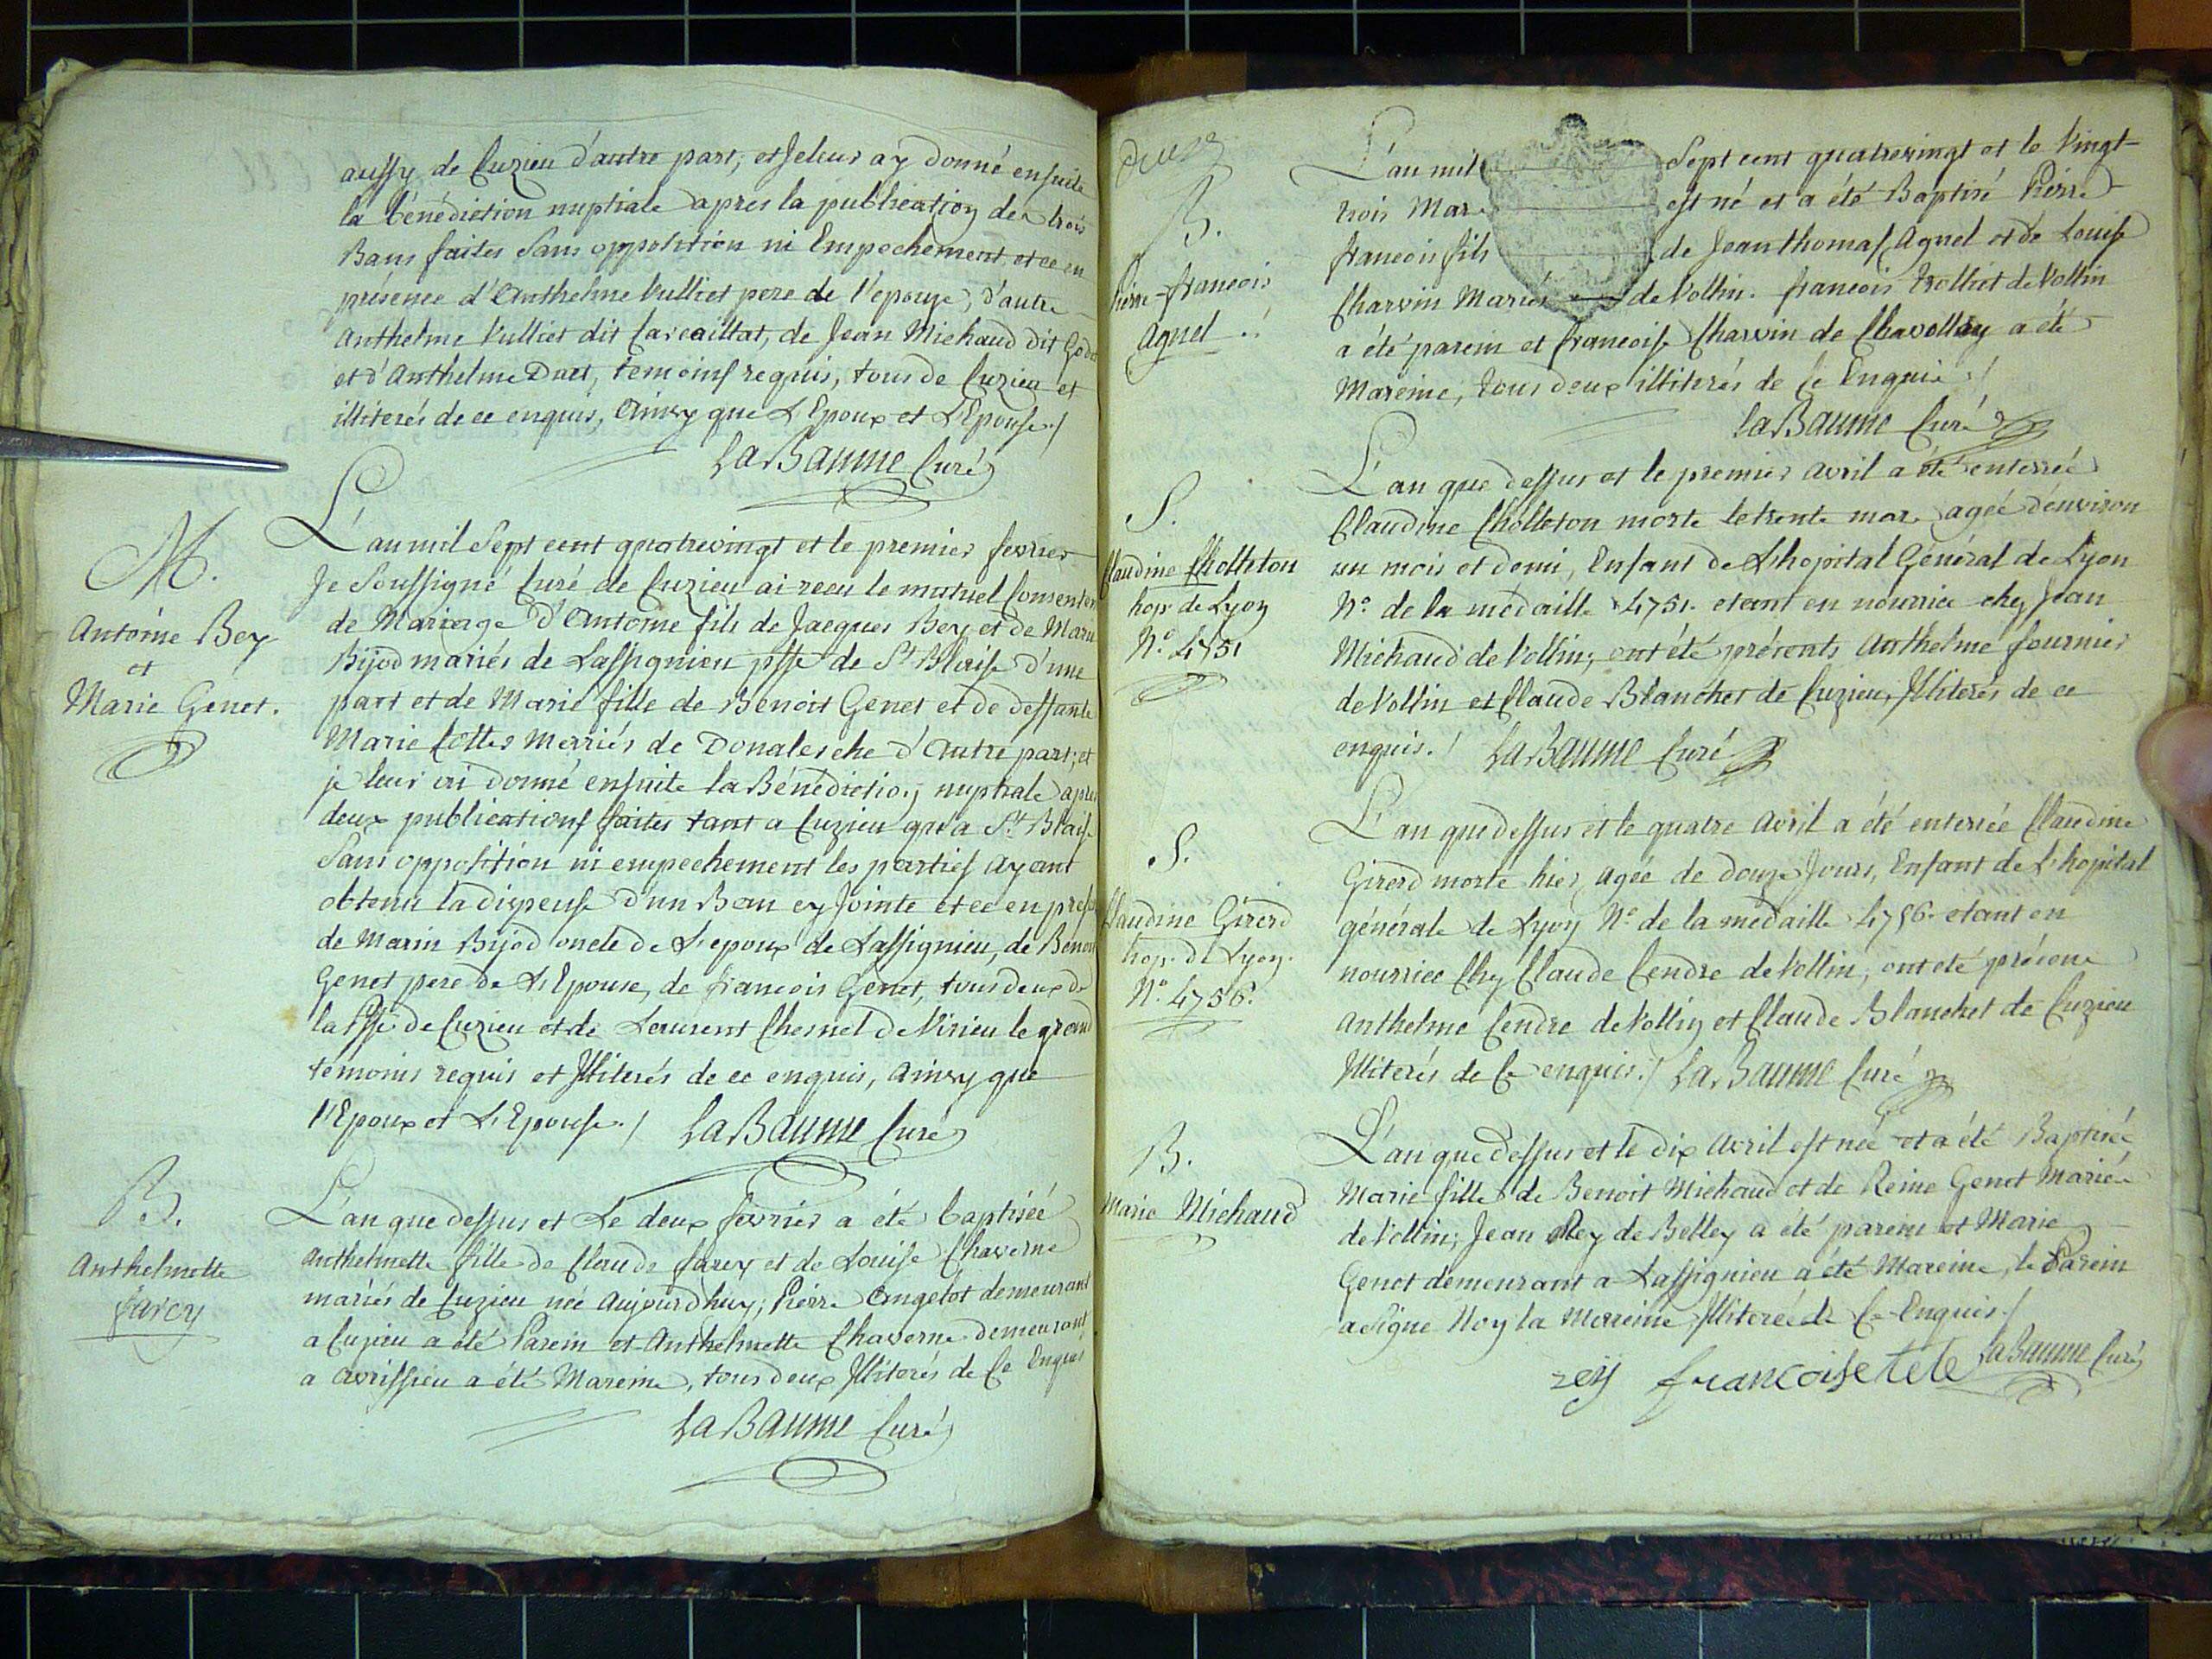 aussy de Cuzieu d'autre part, et Je leur ay donné ensuite
la bénédiction nuptiale apres la publication des trois
Bans faites Sans opposition ni Empechement et ce en
présence d'Anthelme Vulliet pere de l'epouse, d'autre
Anthelme Vulliet dit Carcaillat, de Jean Michaud dit
et d'Anthelme Duet, temoins requis, tous de Cuzieu et
illiterés de ce enquis, Ainsy que L'Epoux et L'Epouse./
LaBaume Curé
M.
Antoine Bey
et
Marie Genet.
L'an mil Sept cent quatrevingt et le premier fevrier
Je Soussigné Curé de Cuzieu ai recu le mutuel Consentem
de Mariage d'Antoine fils de Jacques Bey et de Marie
Bijod mariés de Lassignieu psse de St Blaise d'une
part et de Marie fille de Benoit Genet et de deffante
Marie Cottes Merriés de Donalesche d'Autre part; et
je leur ai donné ensuite la Bénédiction nuptiale apres
deux publications faites tant a Cuzieu qu'a St Blaise
Sans opposition ni empechement les parties ayant
obtenu la dispense d'un Ban cy Jointe et ce en prese
de Marin Bijod oncle de L'epoux de Lassignieu, de Benoit
Genet pere de L'Epouse, de francois Genet, tous deux de
la Psse de Cuzieu et de Laurent Chesnel de Virieu le grand
témoins requis et Illiterés de ce enquis, Ainsy que
l'Epoux et L'Epouse./ LaBaume Curé
B.
Anthelmette
farcy
L'an que dessus et Le deux fevrier a été baptisée
Anthelmette fille de Claude farcy et de Louise Chaverne
mariés de Cuzieu née Aujourdhuy; Pierre Angelot demeurant
a Cuzieu a été Parein et Anthelmette Chaverne demeurant
a Avrissieu a été Mareine, tous deux Illiterés de Ce Enquis
LaBaume Curé
deux
B.
Pierre-francois
Agnel
L'an mil Sept cent quatrevingt et le Vingt-
trois Mars est né et a été Baptisé Pierre
francois fils de Jean thomas Agnel et de Louise
Charvin Mariés de Vollin. francois trolliet de Vollin
a été parein et francoise Charvin de Chavollay a été
Mareine, tous deux illiterés de Ce Enquis./
LaBaume Curé
S.
Claudine Cholleton
hop. de Lyon
No. 4751
L'an que dessus et le premier avril a été enterrée
Claudine Cholleton morte le trente mars agée d'environ
un mois et demi, Enfant de L'hopital Général de Lyon
No. de la medaille 4751. etant en nourrice chez Jean
Michaud de Vollin; ont été présents Anthelme fournier
de Vollin et Claude Blanchet de Cuzieu, Illiterés de ce
enquis./ LaBaume Curé
S.
Claudine Girerd
hop. de Lyon.
No. 4756.
L'an que dessus et le quatre Avril a été enterrée Claudine
Girerd morte hier, agée de douze Jours, Enfant de L'hopital
générale de Lyon No. de la médaille 4756. etant en
nourrice Chez Claude Cendre de Vollin, ont eté présens
Anthelme Cendre de Vollin et Claude Blanchet de Cuzieu
Illiterés de Ce enquis./ LaBaume Curé
B.
Marie Michaud
L'an que dessus et le dix Avril est née et a été Baptisée
Marie fille de Benoit Michaud et de Reine Genet Mariés
de Vollin; Jean Rey de Belley a été parein et Marie
Genet demeurant a Lassignieu a été Mareine, le Parein
a Signé Noy la Mereine Illiterée de Ce Enquis./
rey francoise tete LaBaume Curé